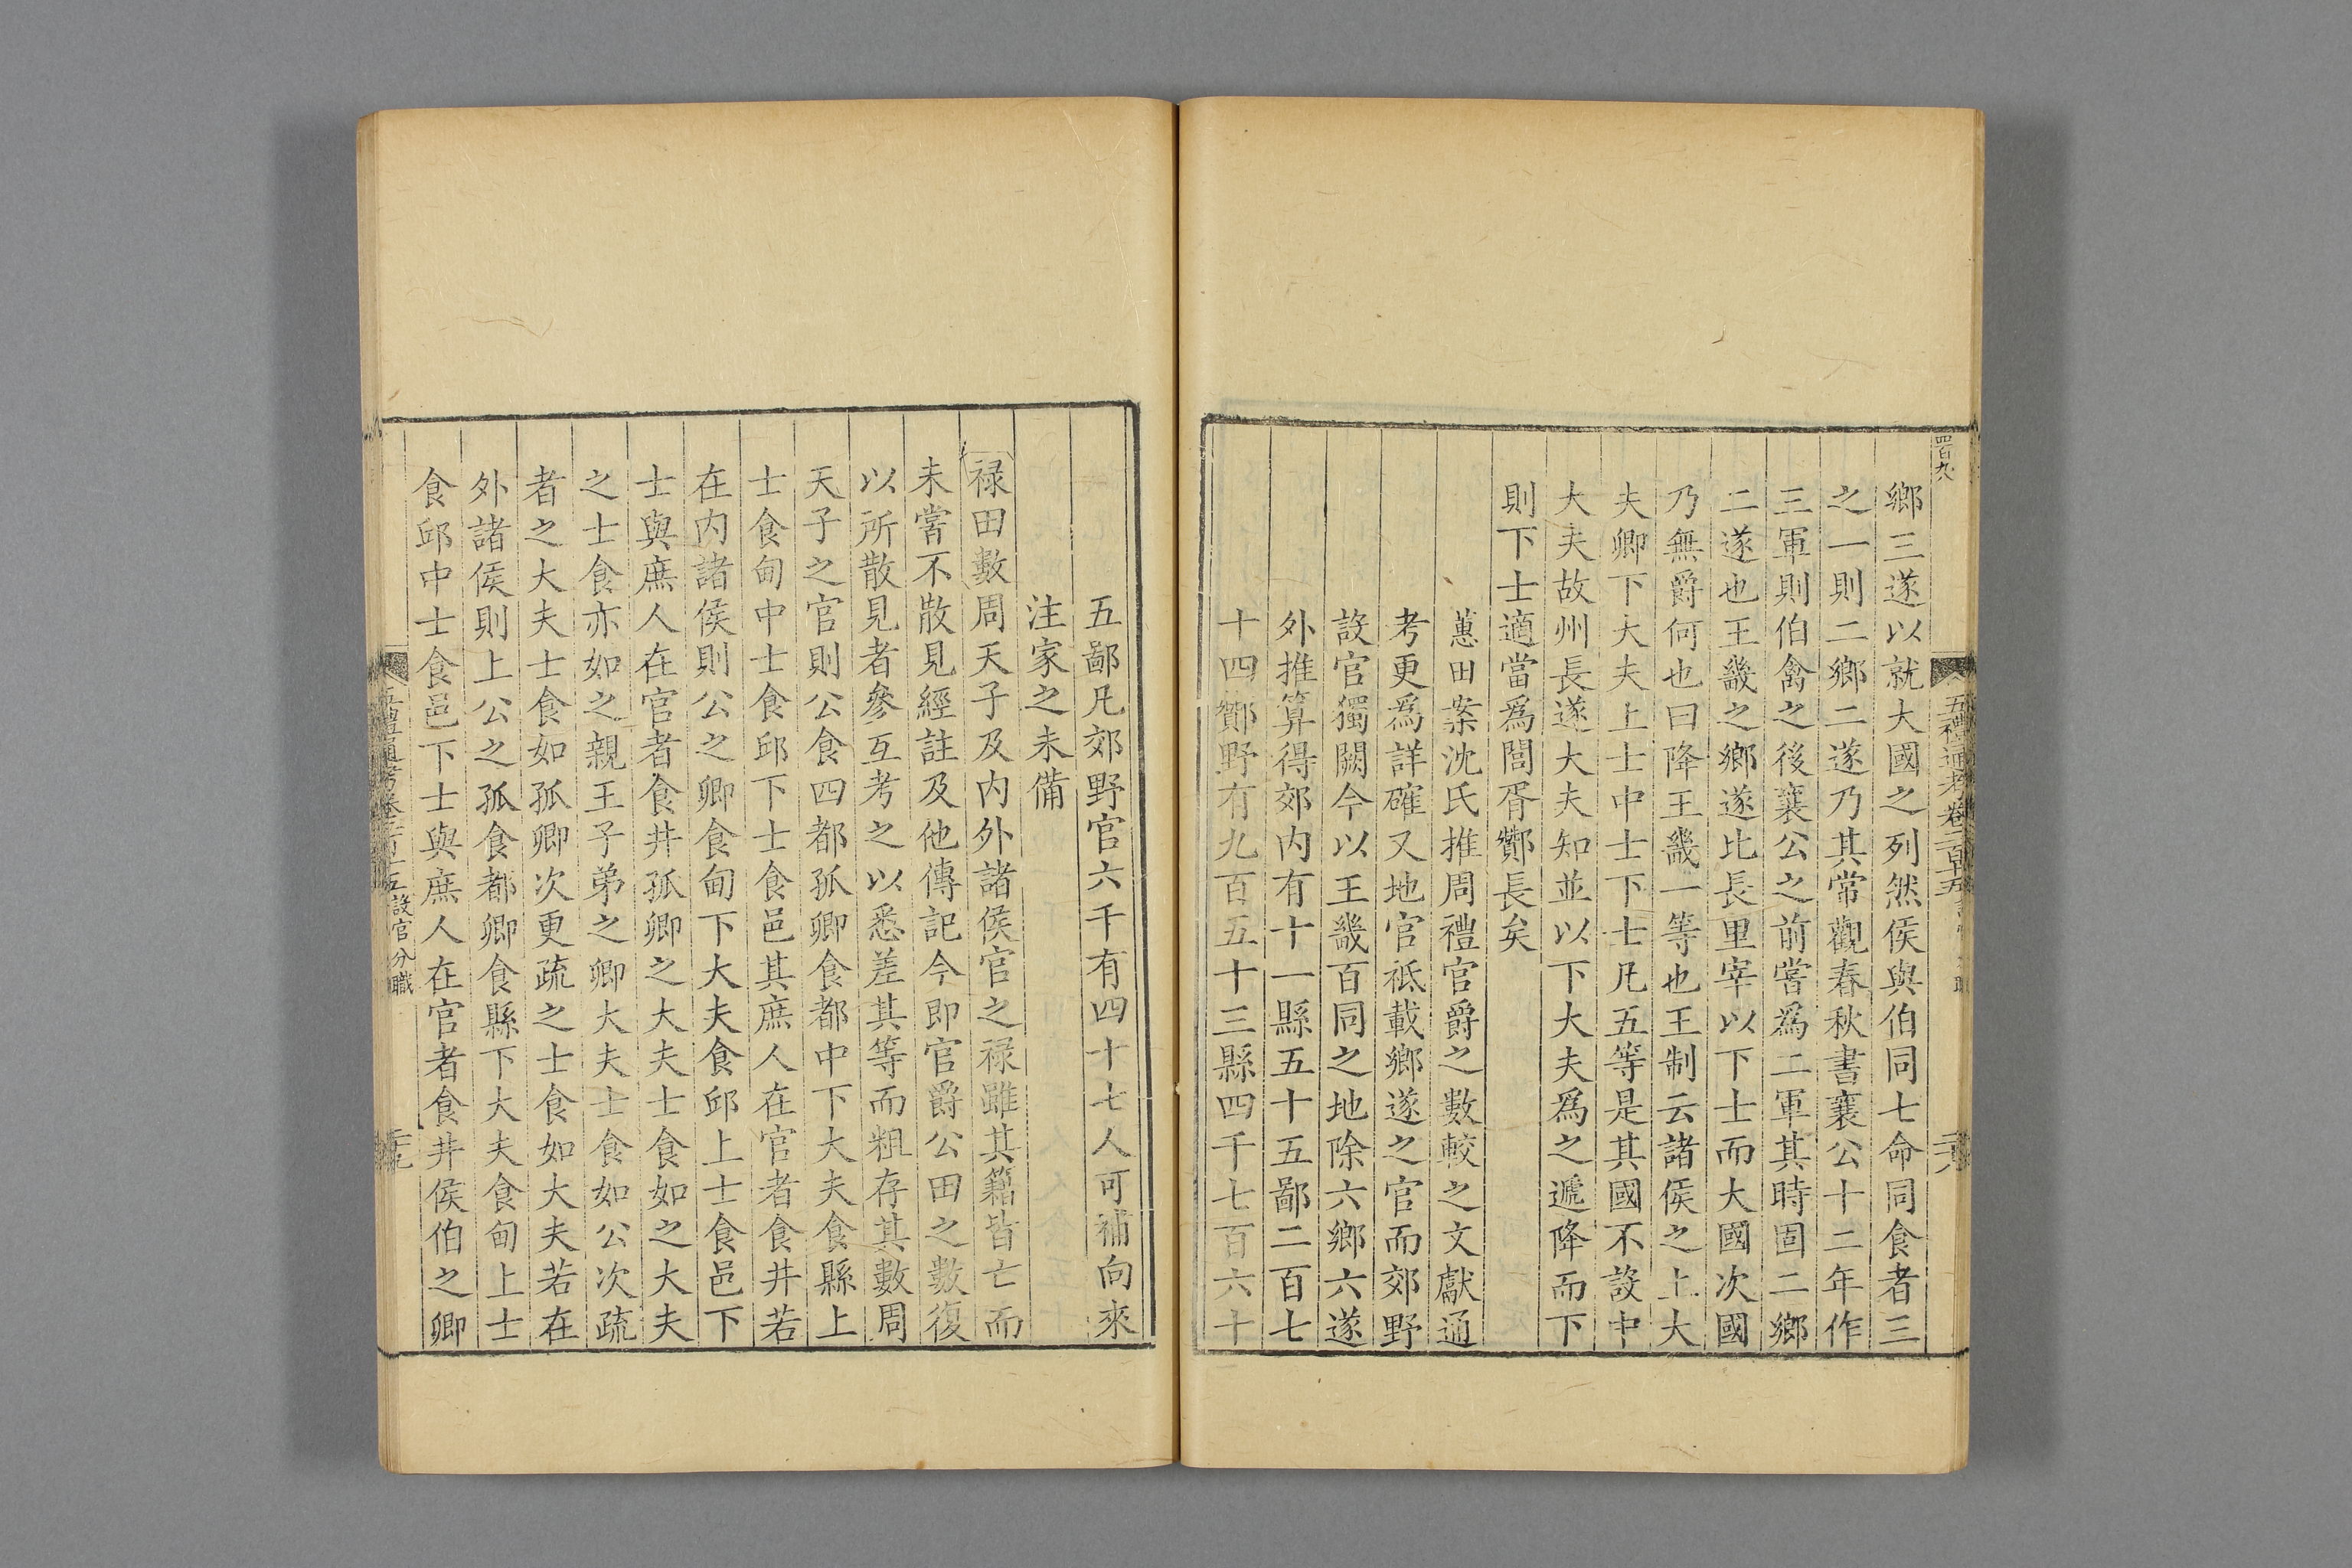 四百九
五禮通考卷二百十五
鄉三遂以就大國之列然侯與伯同七命同食者三
之一則二鄉二遂乃其常觀春秋書襄公十二年作
三軍則伯禽之後襄公之前嘗爲二軍其時固二鄉
二遂也王畿之鄉遂比長里宰以下士而大國次國
乃無爵何也曰降王畿一等也王制云諸侯之上大
夫卿下大夫上士中士下士凡五等是其國不設中
大夫故州長遂大夫知並以下大夫爲之遞降而下
則下士適當爲閭胥酇長矣
蕙田案沈氏推周禮官爵之數較之文獻通
考更爲詳確又地官衹載鄉遂之官而郊野
設官獨闕今以王畿百同之地除六鄉六遂
外推算得郊內有十一縣五十五鄙二百七
十四酇野有九百五十三縣四千七百六十
五鄙凡郊野官六千有四十七人可補向來
注家之未備
祿田數周天子及內外諸侯官之祿雖其籍皆亡而
未嘗不散見經註及他傳記今即官爵公田之數復
以所散見者參互考之以悉差其等而粗存其數周
天子之官則公食四都孤卿食都中下大夫食縣上
士食甸中士食邱下士食邑其庶人在官者食井若
在內諸侯則公之卿食甸下大夫食邱上士食邑下
士與庶人在官者食井孤卿之大夫士食如之大夫
之士食亦如之親王子弟之卿大夫士食如公次疏
者之大夫士食如孤卿次更疏之士食如大夫若在
外諸侯則上公之孤食都卿食縣下大夫食甸上士
食邱中士食邑下士與庶人在官者食井侯伯之卿
設官分職